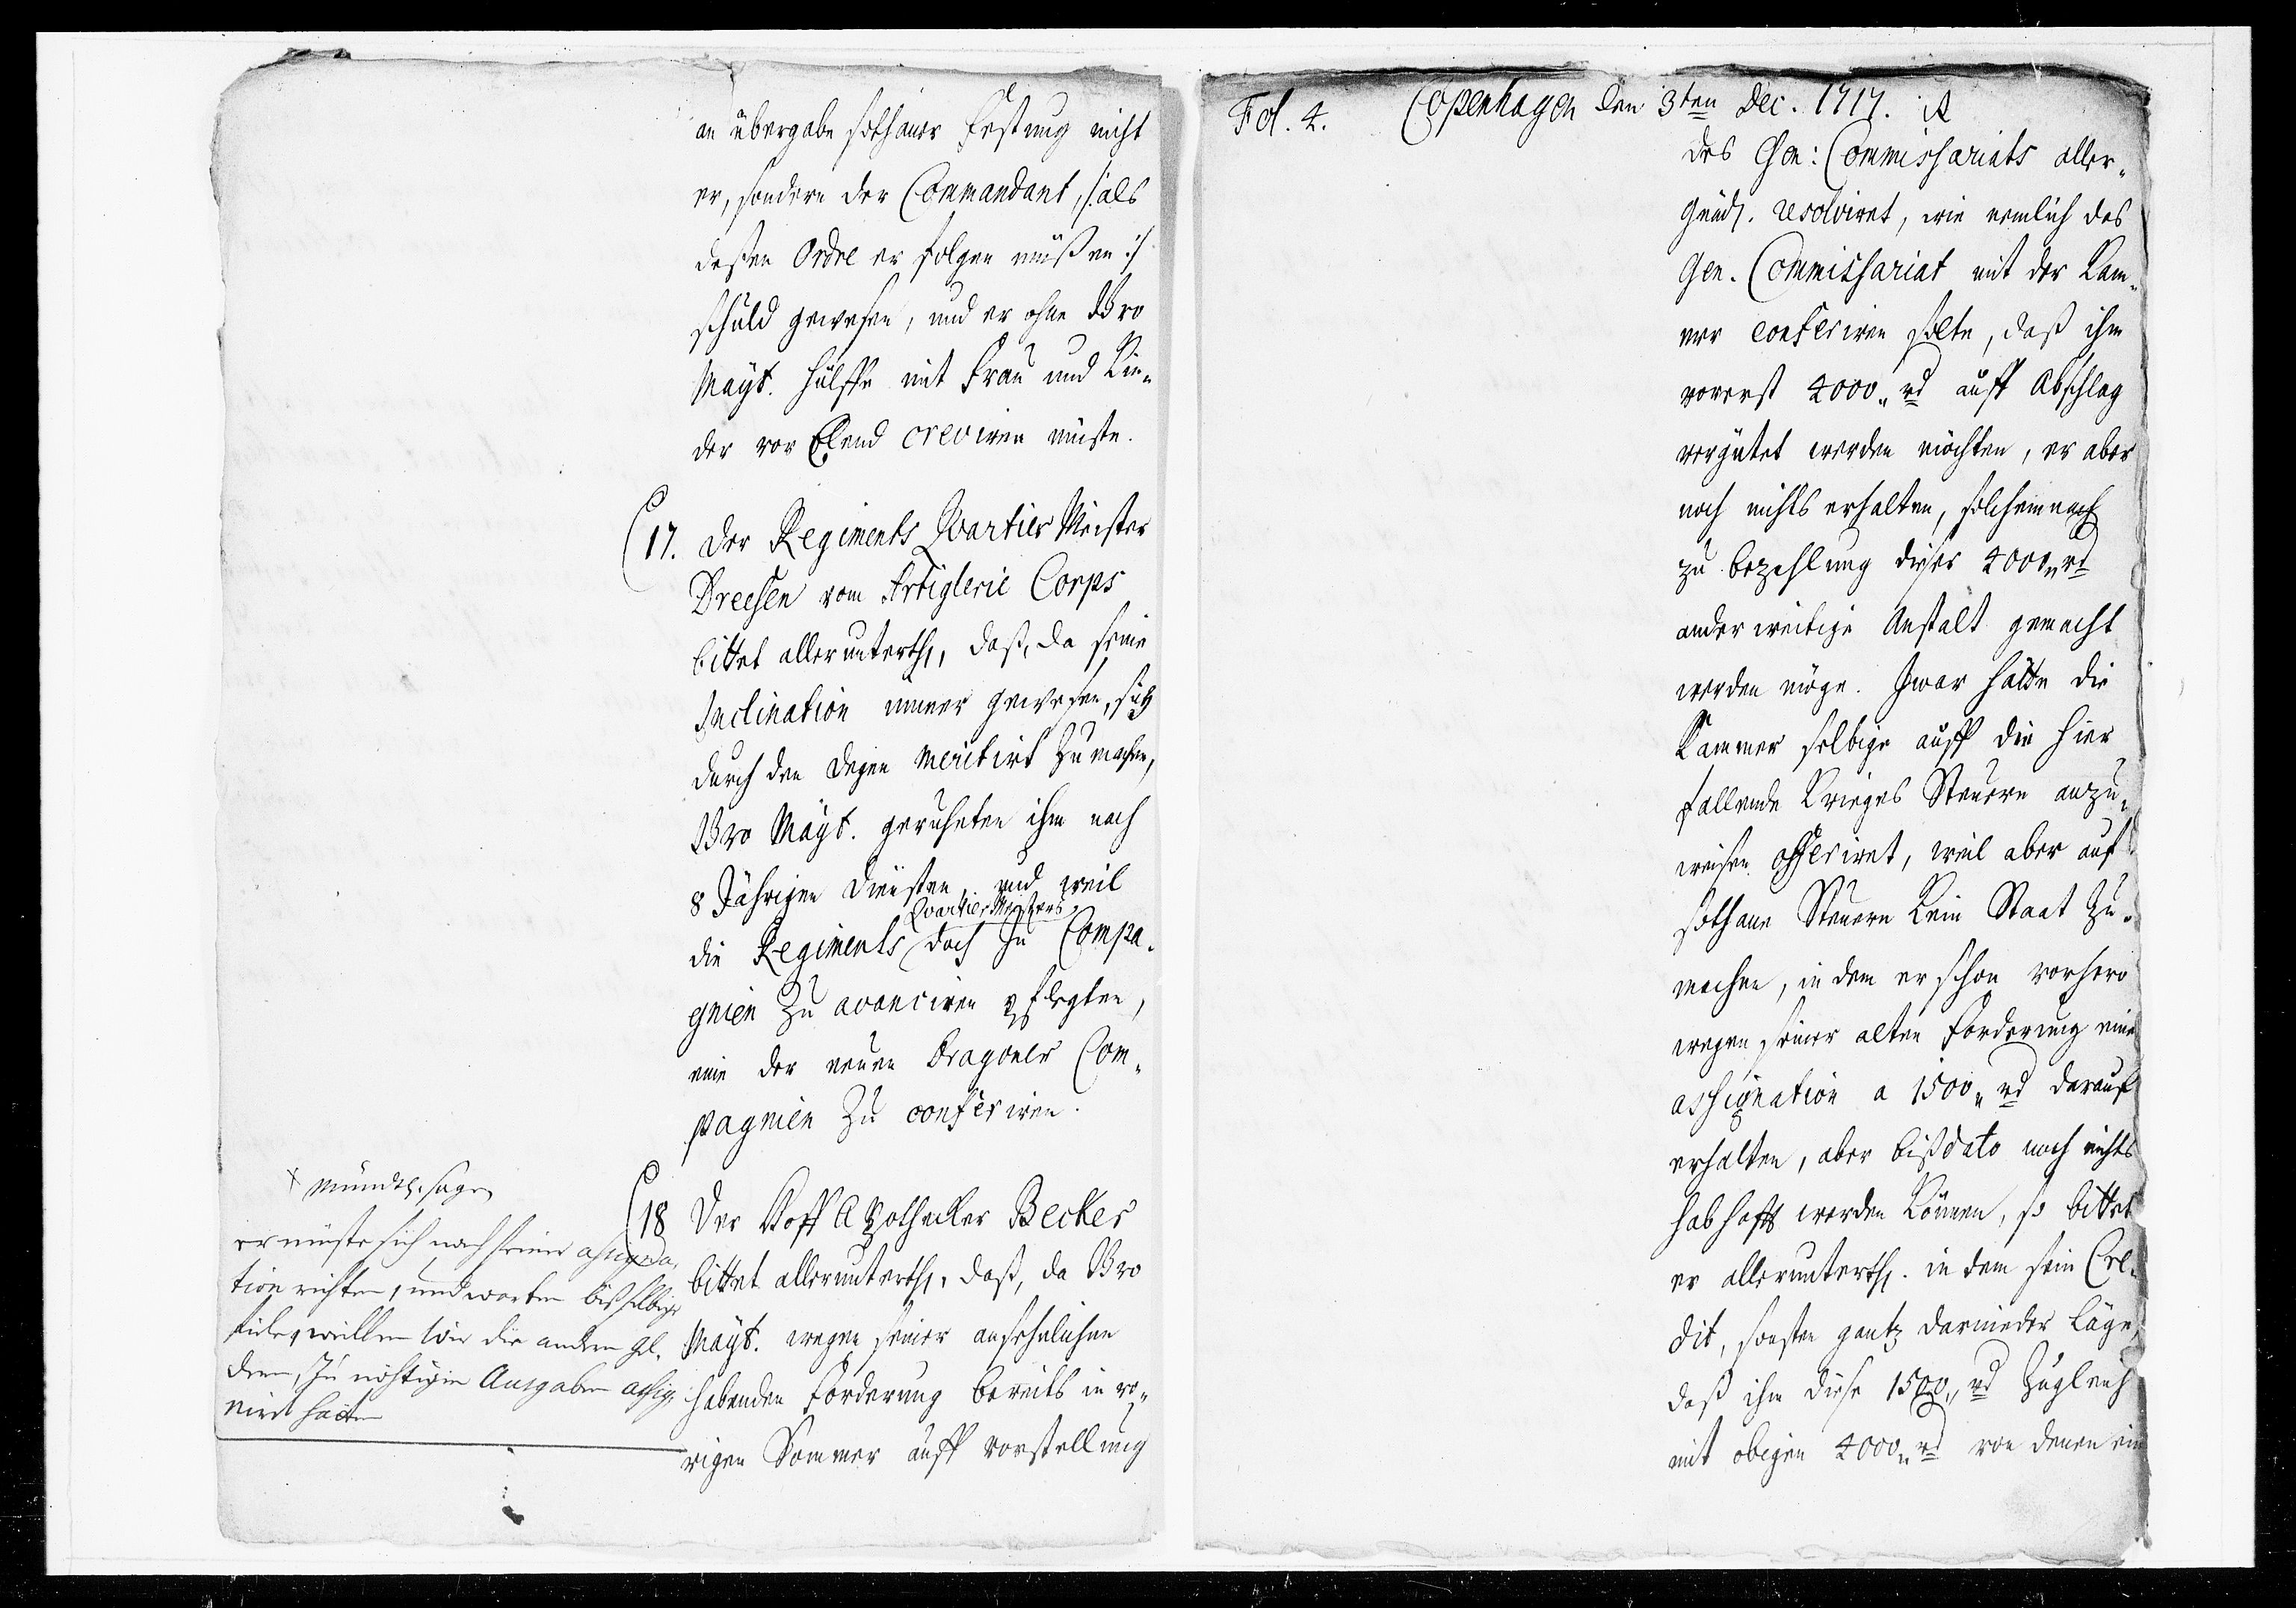 an übergabe sothaner Festung nicht
er, sondern der Commandant, /: als
deßen Ordre er folgen müßen :/
schuld gewesen, und er ohne Ewro
Mayt. hülffe mit Frau und Kin-
der vor Elend creviren müste.
17. Der Regiments Qvartier Meister
Dreesen vom Artiglerie Corps
bittet allerunterth., daß, da seine
Inclination immer gewesen, sich
durch den Degen meritirt zu machen,
Ewro Mayt. geruheten ihm nach
8 Jährigen Diensten, und weil
die Regiments Qvartier Meisters doch zu Compa-
gnien zu avanciren pflegten,
eine der neuen Dragoner Com-
pagnien zu conferiren.
18 Der Hoff Apothecker Becker
bittet allerunterth., daß, da Ewro
Mayt. wegen seiner ansehnlichen
habenden Forderung bereits in vo-
rigen Sommer auff vorstellung
+ mündtl. sagen
er müste sich nach seiner assigna-
tion richten, und warten biß selbige
fiele, weillen Wir die andern gel-
dern, zu nöhtigen Ausgaben assig-
nirt hätten
Fol. 4. Copenhagen den 3ten Dec. 1717. A
des Gen: Commissariats aller-
gnäd. resolviret, wie nemlich das
Gen. Commissariat mit der Kam-
mer conferiren solte, daß ihm
vorerst 4000 rd auff Abschlag
vergütet werden möchten, er aber
noch nichts erhalten, solchemnach
zu bezahlung dieser 4000 rd
anderweitige Anstalt gemacht
werden möge. Zwar hätte die
Kammer selbige auff die hier
fallende Krieges Steuern anzu-
weisen offeriret, weil aber auf
sothane Steuern kein Staat zu-
machen, in dem er schon vorhero
wegen seiner alten Forderung eine
assignation a 1500 rd darauf
erhalten, aber biß dato noch nichts
habhafft werden können, so bittet
er allerunterth. in dem sein Cre-
dit, sonsten gantz darnieder läge,
daß ihm diese 1500 rd zugleich
mit obigen 4000 rd von denen ein